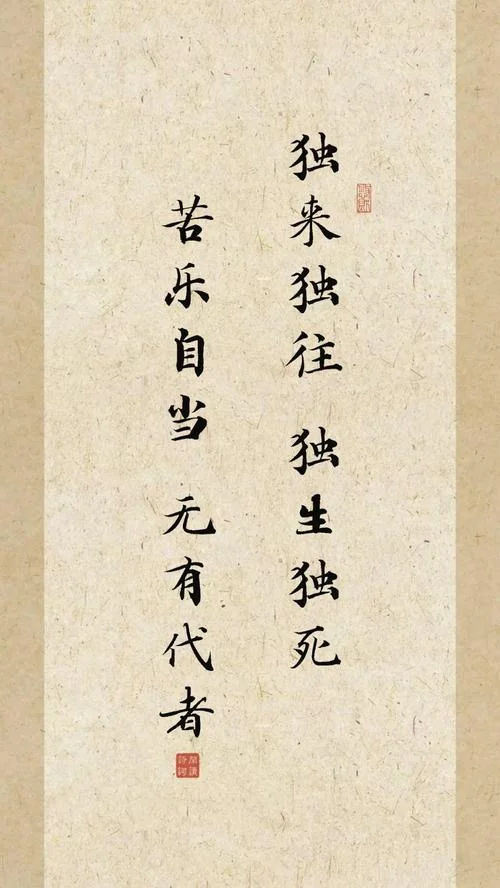 独来独往 独生独死
苦乐自当 无有代者